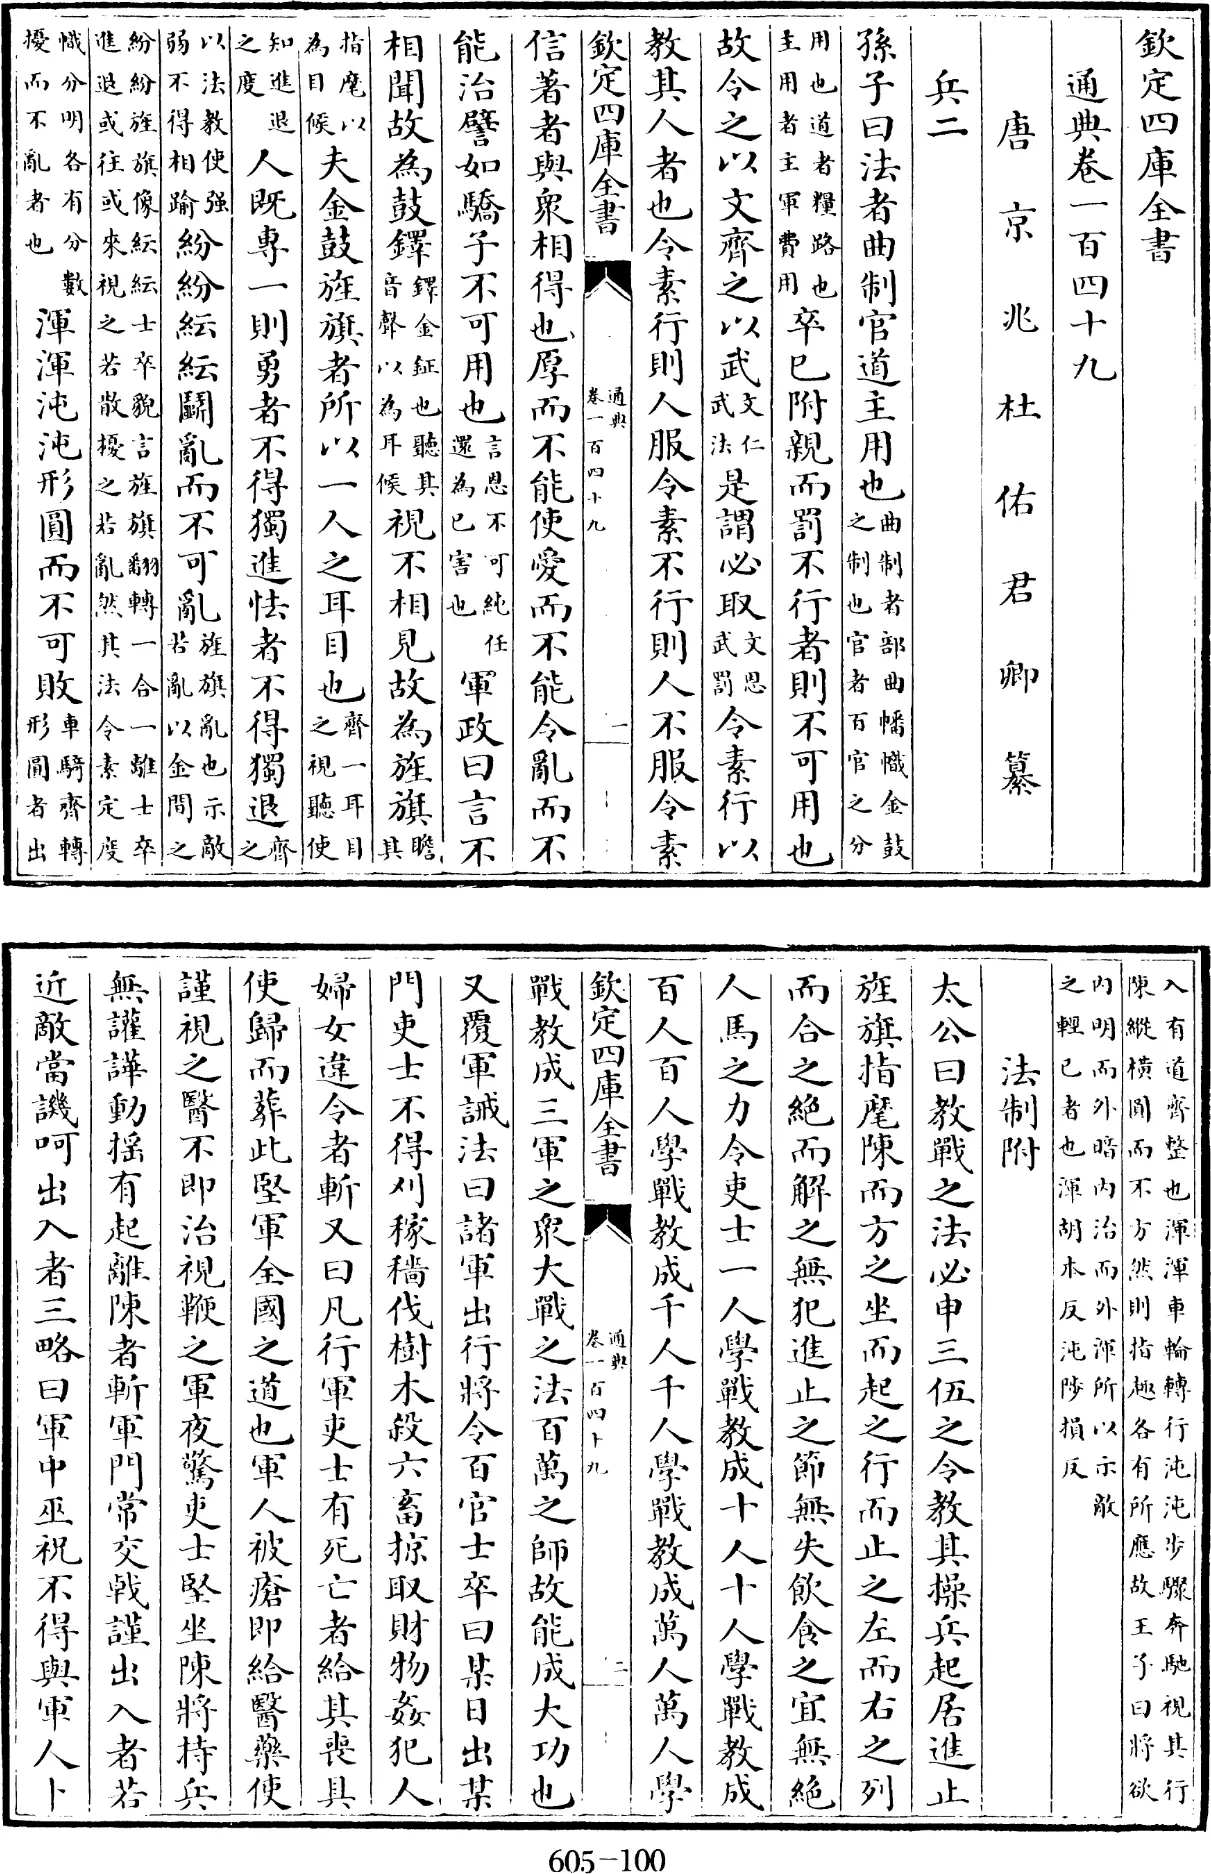 欽定四庫全書
通典卷一百四十九
唐京兆杜佑君卿纂
兵二
孫子曰法者曲制官道主用也曲制者部曲幡幟金鼓之制也官者百官之分
用也道者糧路也主用者主軍費用卒已附親而罰不行者則不可用也
故令之以文齊之以武文仁武法是謂必取文恩武罰令素行以
教其人者也令素行則人服令素不行則人不服令素
欽定四庫全書 通典卷一百四十九 一
信著者與衆相得也厚而不能使愛而不能令亂而不
能治譬如驕子不可用也言恩不可純任還為已害也軍政曰言不
相聞故為鼓鐸鐸金鉦也聽其音聲以為耳候視不相見故為旌旗瞻其
指麾以為目候夫金鼓旌旗者所以一人之耳目也齊一耳目之視聽使
知進退之度人既專一則勇者不得獨進怯者不得獨退齊之
以法教使强弱不得相踰紛紛紜紜鬭亂而不可亂旌旗亂也示敵若亂以金間之
紛紛旌旗像紜紜士卒貌言旌旗翻轉一合一離士卒進退或往或來視之若散擾之若亂然其法令素定度
幟分明各有分數擾而不亂者也渾渾沌沌形圓而不可敗車騎齊轉形圓者出
入有道齊整也渾渾車輪轉行沌沌步驟奔馳視其行陳縱橫圓而不方然則指趨各有所應故王子曰將欲
内明而外暗内治而外渾所以示敵之輕已者也渾胡本反沌陟損反
法制附
太公曰教戰之法必申三伍之令教其操兵起居進止
旌旗指麾陳而方之坐而起之行而止之左而右之列
而合之絶而解之無犯進止之節無失飲食之宜無絶
人馬之力令吏士一人學戰教成十人十人學戰教成
百人百人學戰教成千人千人學戰教成萬人萬人學
欽定四庫全書 通典卷一百四十九 二
戰教成三軍之衆大戰之法百萬之師故能成大功也
又覆軍誡法曰諸軍出行將令百官士卒曰某日出某
門吏士不得刈稼穡伐樹木殺六畜掠取財物姦犯人
婦女違令者斬又曰凡行軍吏士有死亡者給其喪具
使歸而葬此堅軍全國之道也軍人被瘡即給醫藥使
謹視之醫不即治視鞭之軍夜驚吏士堅坐陳將持兵
無讙譁動揺有起離陳者斬軍門常交戟謹出入者若
近敵當譏呵出入者三略曰軍中巫祝不得與軍人卜
605-100